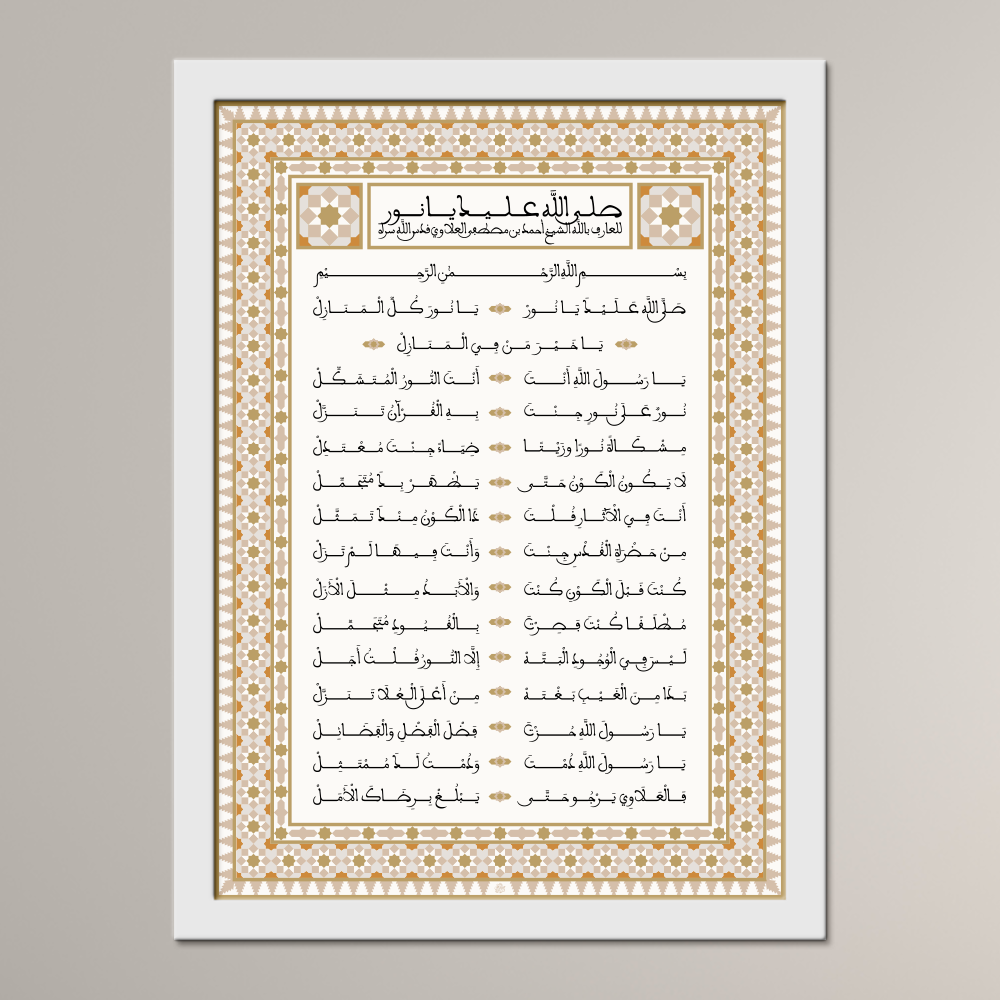 صلى الله عليك يا نور
للعارف بالله الشيخ أحمد بن مصطفى العلاوي قدس الله سره
بِسْمِ اللَّهِ الرَّحْمٰنِ الرَّحِيْمِ
صَلَّى اللَّهُ عَلَيْكَ يَا نُورْ يَا نُورَ كُلِّ الْمَنَازِلْ
يَا خَيْرَ مَنْ فِي الْمَنَازِلْ
يَا رَسُولَ اللَّهِ أَنْتَ أَنْتَ النُّورُ الْمُتَشَكِّلْ
نُورٌ عَلَى نُورٍ جِئْتَ بِهِ الْقُرْآنُ تَنَزَّلْ
مِشْكَاةٌ نُورًا وَزَيْتًا ضِيَاءً جِئْتَ مُعْتَدِلْ
لَا يَكُونُ الْكَوْنُ حَتَّى يَظْهَرْ بِكَ مُتَجَمِّلْ
أَنْتَ فِي الْآثَارِ قُلْتَ ذَا الْكَوْنُ مِنْكَ تَمَثَّلْ
مِنْ حَضْرَةِ الْقُدْسِ جِئْتَ وَأَنْتَ فِيهَا لَمْ تَزَلْ
كُنْتَ قَبْلَ الْكَوْنِ كُنْتَ وَالْأَبَدُ مِثْلَ الْأَزَلْ
مُطْلَقًا كُنْتَ فَصِرْتَ بِالْقُيُودِ مُتَجَمِّلْ
لَيْسَ فِي الْوُجُودِ الْبَتَّةْ إِلَّا النُّورُ قُلْتُ أَجَلْ
بَدَا مِنَ الْغَيْبِ بَغْتَةْ مِنْ أَعْلَى الْعُلَا تَنَزَّلْ
يَا رَسُولَ اللَّهِ حُزْتَ فَضْلَ الْفَضْلِ وَالْفَضَائِلْ
يَا رَسُولَ اللَّهِ دُمْتَ وَدُمْتُ لَكَ مُمْتَثِلْ
فَالْعَلَاوِي يَرْجُو حَتَّى يَبْلُغْ بِرِضَاكَ الْأَمَلْ